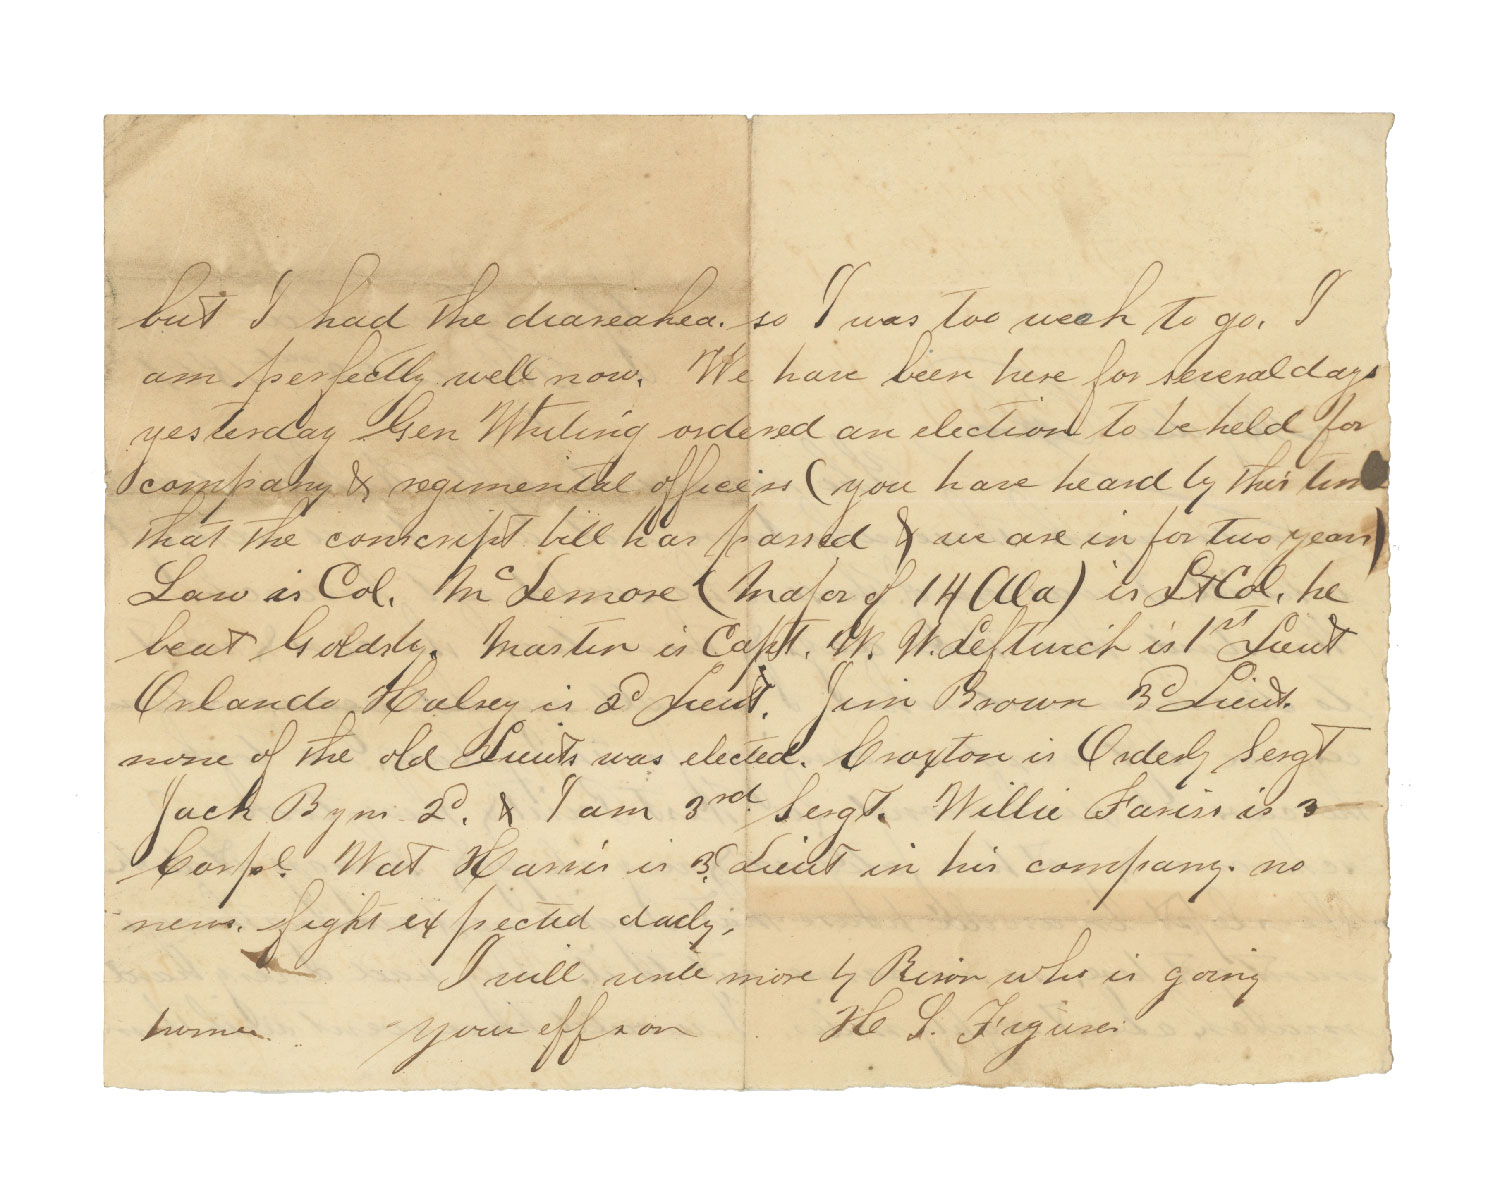 but I had the diareahea. so I was too weak to go. I
am perfectly well now. We have been here for several days
yesterday Gen Whiting ordered an election to be held for
company & regimental officers (you have heard by this time
that the conscript bill has passed & we are in for two years)
Law is Col. McLemore (Major of 14 Ala) is Lt Col. he
beat Goldsby. Martin is Capt. W. W. Leftwich is 1st Lieut
Orlando Halsey is 2d Lieut. Jim Brown 3d Lieut.
none of the old Lieuts was elected. Croxton is Orderly Sergt
Jack 2d. & I am 3rd Sergt. Willie Fariss is 3
Corpl. Wat Harris is 3d Lieut in his company. no
news. fight expected daily.
I will write more by who is going
home. your aff son H S. Figures